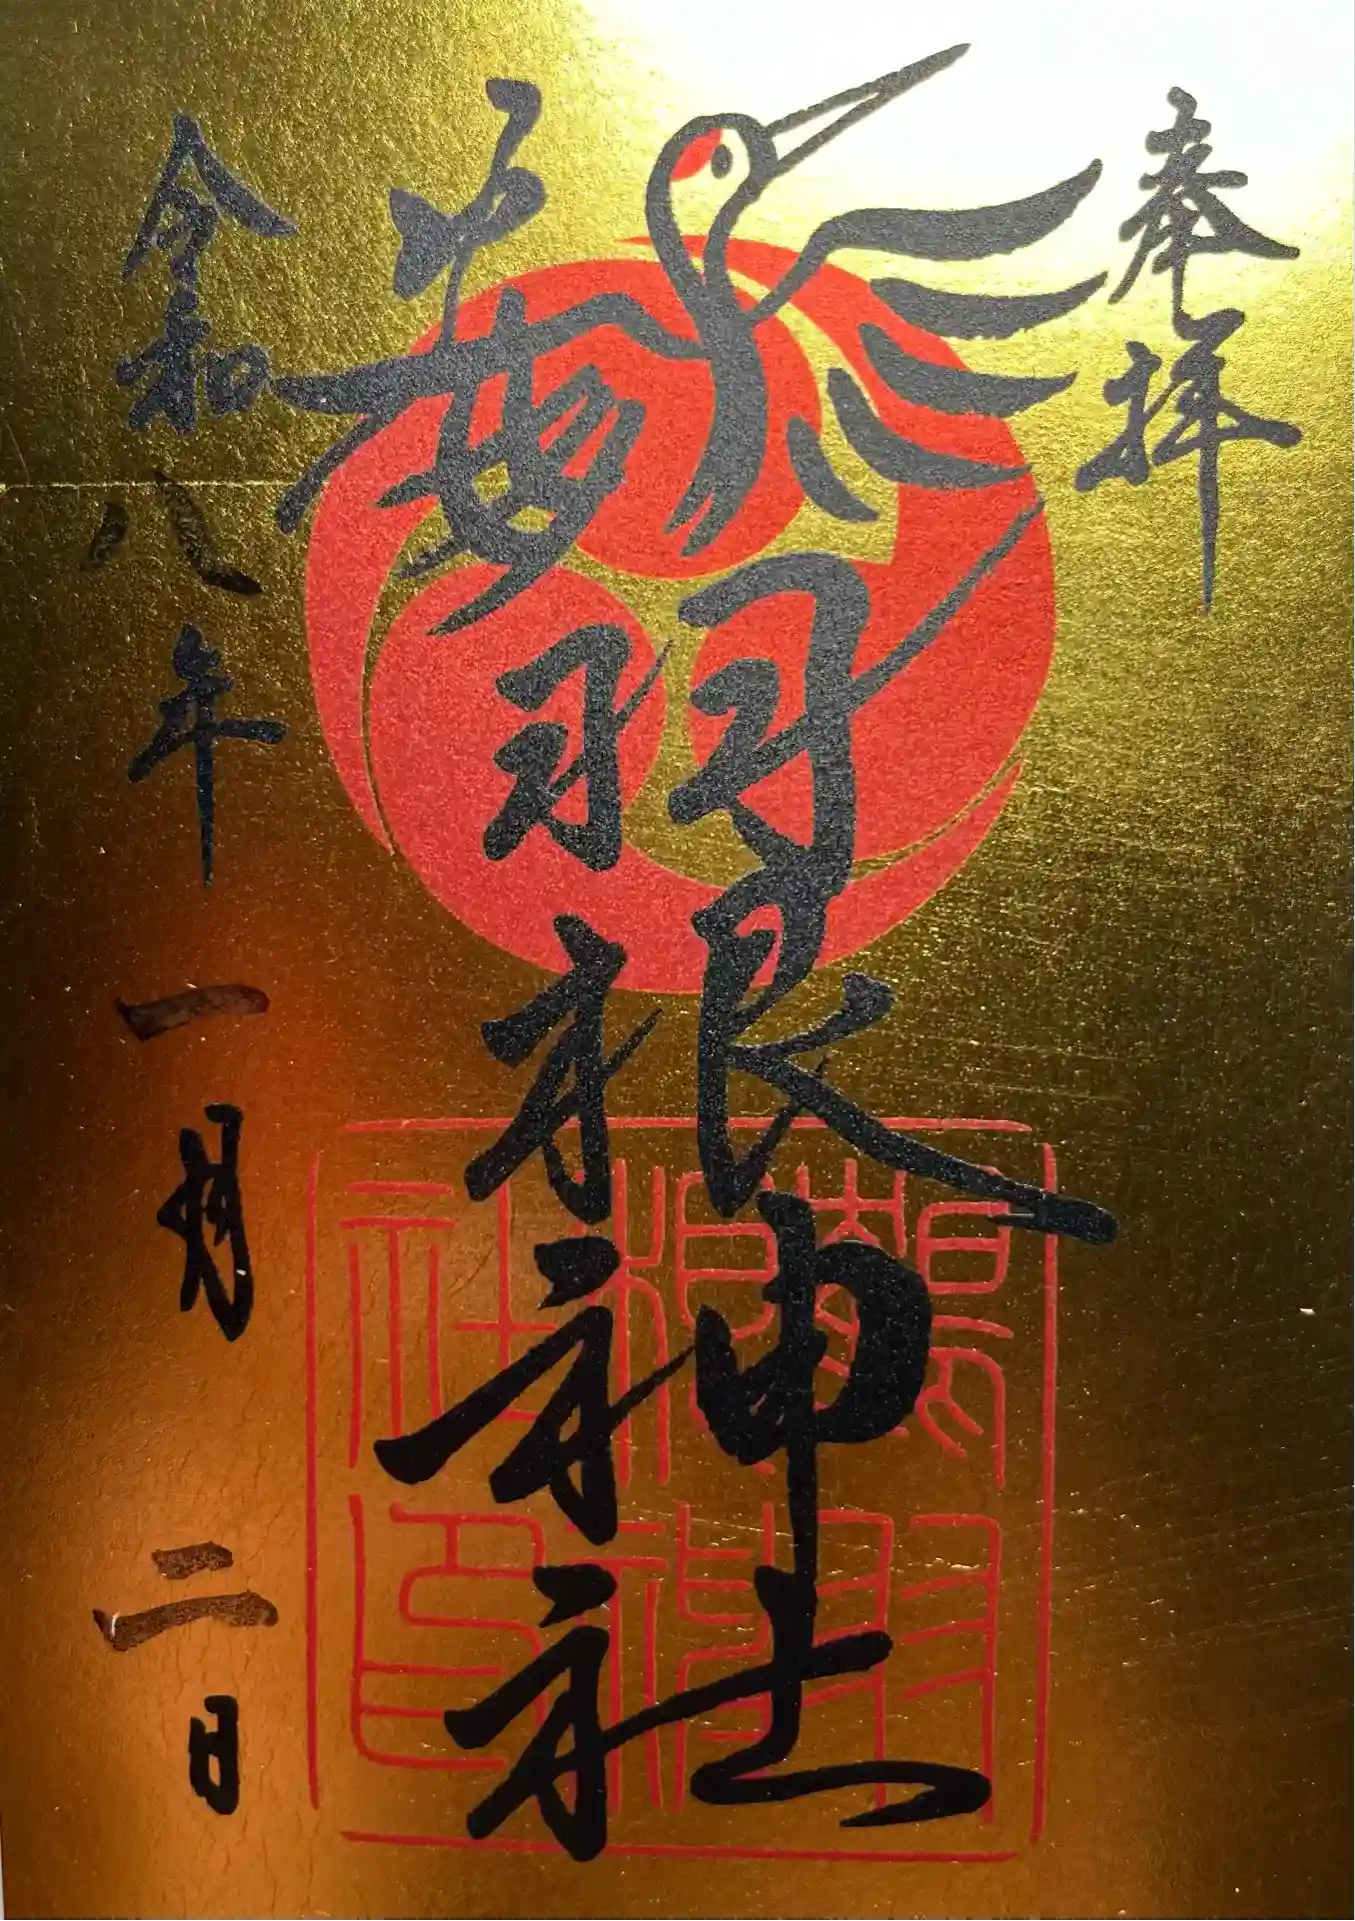 奉拝
鶴羽根神社
鶴羽
根神
社印
令和八年一月二日